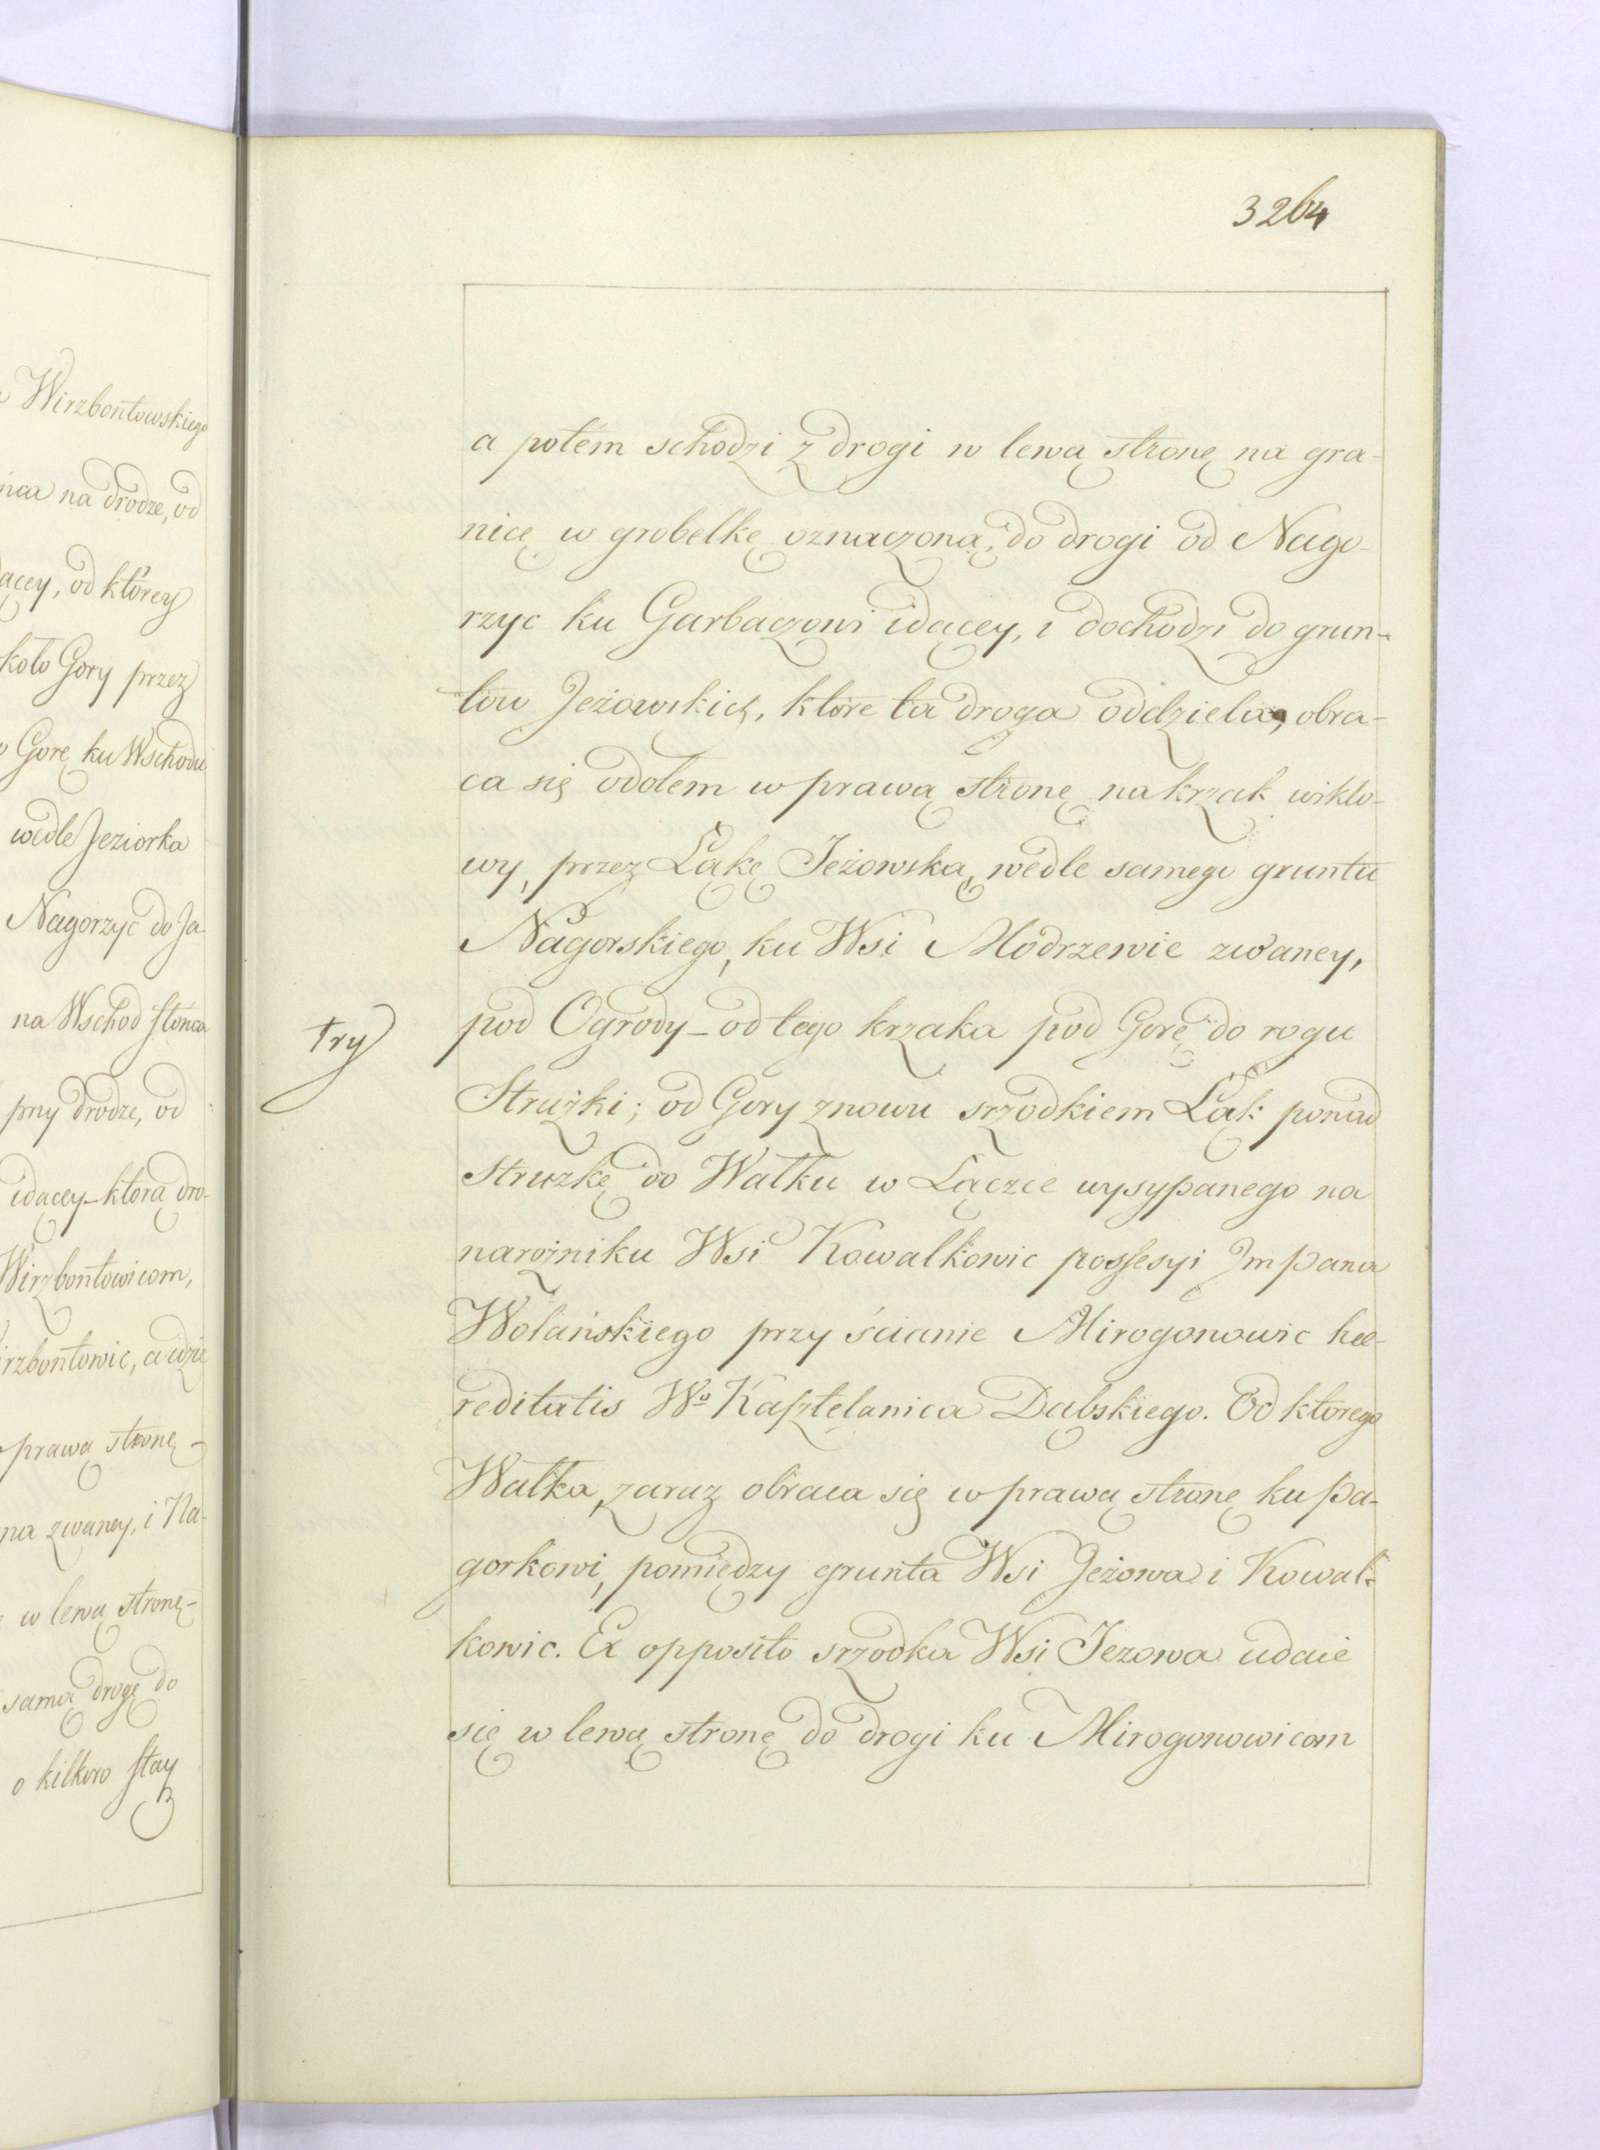 Wirzbontowskiego
na drodze, od
od ktorey
koło Gory przez
Gorę ku Wschodu
wedle Jeziorka
Nagorzyc do Ja-
na Wschod słonca
przy drodze, od
idącey - ktora dro-
Wirzbontowicom,
a idzie
prawą stronę -
zwaney, i Na-
w lewą stronę -
samą drogę do
o kilkoro stay
3264
a potém schodzi z drogi w lewą stronę na gra-
nicę w grobelkę oznaczoną, do drogi od Nago-
rzyc ku Garbaczowi idącey, i dochodzi do grun-
tow Jeżowskich, ktore ta droga oddziela, obra-
ca się odołem w prawą stronę na krzak wiklo-
wy, przez Łąkę Jeżowską wedle samego gruntu
Nagorskiego, ku Wsi Modrzewie zwaney,
pod Ogrody - od tego krzaka pod Gorę do rogu
try
Strużki; od Gory znowu srzodkiem Łąk ponad
Strużkę do Wałku w Łączce wysypanego na
narożniku Wsi Kowalkowic possesyi Jmpana
Wolańskiego przy ścianie Mirogonowic hæ-
reditatis Wo Kasztelanica Dąbskiego. Od ktorego
Wałka, zaraz obraca się w prawą stronę ku pa-
gorkowi, pomiędzy grunta Wsi Jeżowa i Kowal-
kowic. Ex opposito srzodka Wsi Jeżowa udaie
się w lewą stronę do drogi ku Mirogonowicom